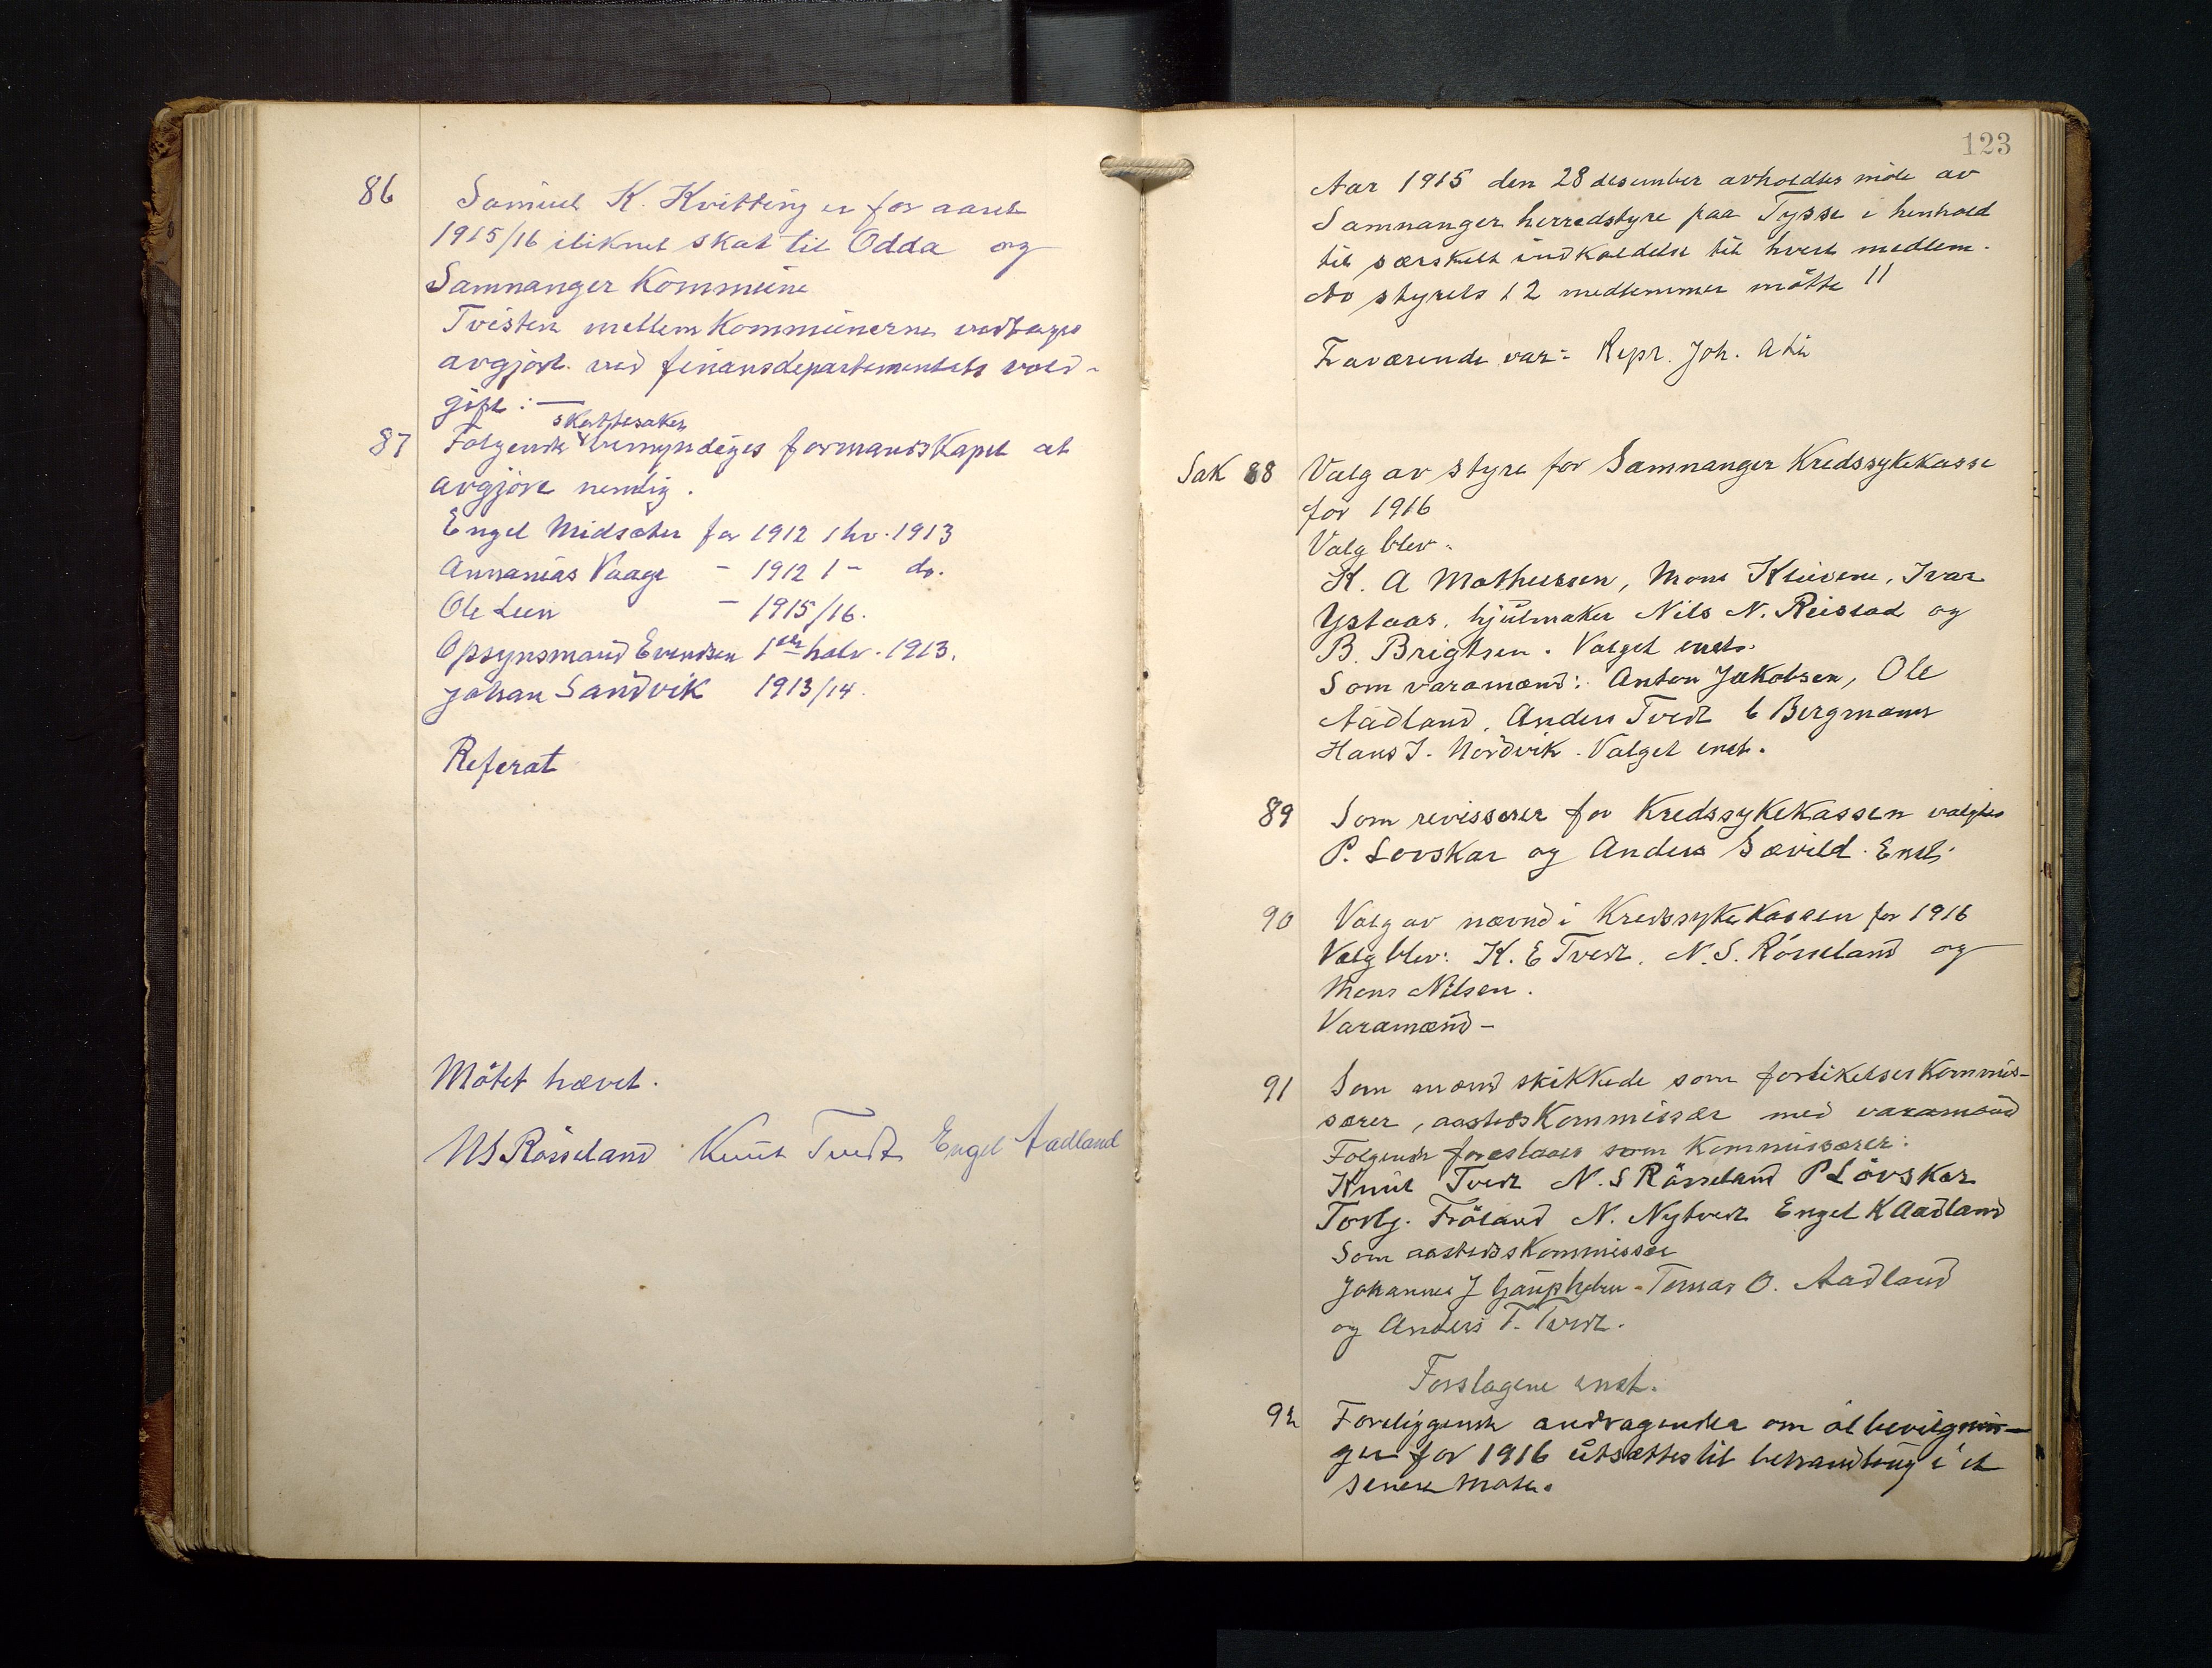 86 Samuel K. Kvitting er for aaret
1915/16 iliknet skat til Odda og
Samnanger Kommune
Tvisten mellem Kommunerne vedtages
avgjort ved finansdepartementets vold-
gift :—
skattesaker
87 Følgende bemyndiges formandskapet at
avgjøre nemlig.
Engel Midsæter for 1912 1 hv. 1913
Annanias Vaage - 1912 1 - do.
Ole Leen - 1915/16.
Opsynsmand Evendsen 1ste halv. 1913.
Johan Sandvik 1913/14.
Referat
Møtet hævet.
NS Rösseland Knut Tvedt Engel Aadland
123
Aar 1915 den 28 desember avholdtes møte av
Samnanger herredstyre paa Tysse i henhold
til særskilt indkaldelse til hvert medlem.
Av styrets 12 medlemmer møtte 11
Fraværende var: Repr. Joh. A Li
Sak 88 Valg av styre for Samnanger Kredssykekasse
for 1916
Valg blev.
K. A Mathussen, Mons Kleivene, Ivar
Ystaas, hjulmaker Nils N. Reistad og
B. Brigtsen. Valget enst.
Som varamænd: Anton Jakobsen, Ole
Aadland, Anders Tvedt Bergmann
Hans J. Nordvik. Valget enst.
89 Som revisorer for Kredssykekassen valgtes
P. Lovskar og Anders Sævild. Enst.
90 Valg av nævnd i Kredssykekassen for 1916
Valg blev: K. E Tvedt. N. S. Rösseland og
Mons Nilsen.
Varamænd -
91 Som mænd skikkede som forlikelseskommis-
særer, aastedskommissær med varamænd
Følgende foreslaaes som Kommissærer:
Knut Tvedt N. S Rösseland P Lövskar
Torbj. Fröland N. Nytvedt Engel K Aadland
Som aastedskommissær
Johannes J Tomas O. Aadland
og Anders T. Tvedt.
Forslagene enst.
92 Foreliggende andragender om ølbevilgnin-
ger for 1916 utsættes til behandling i et
senere møte.